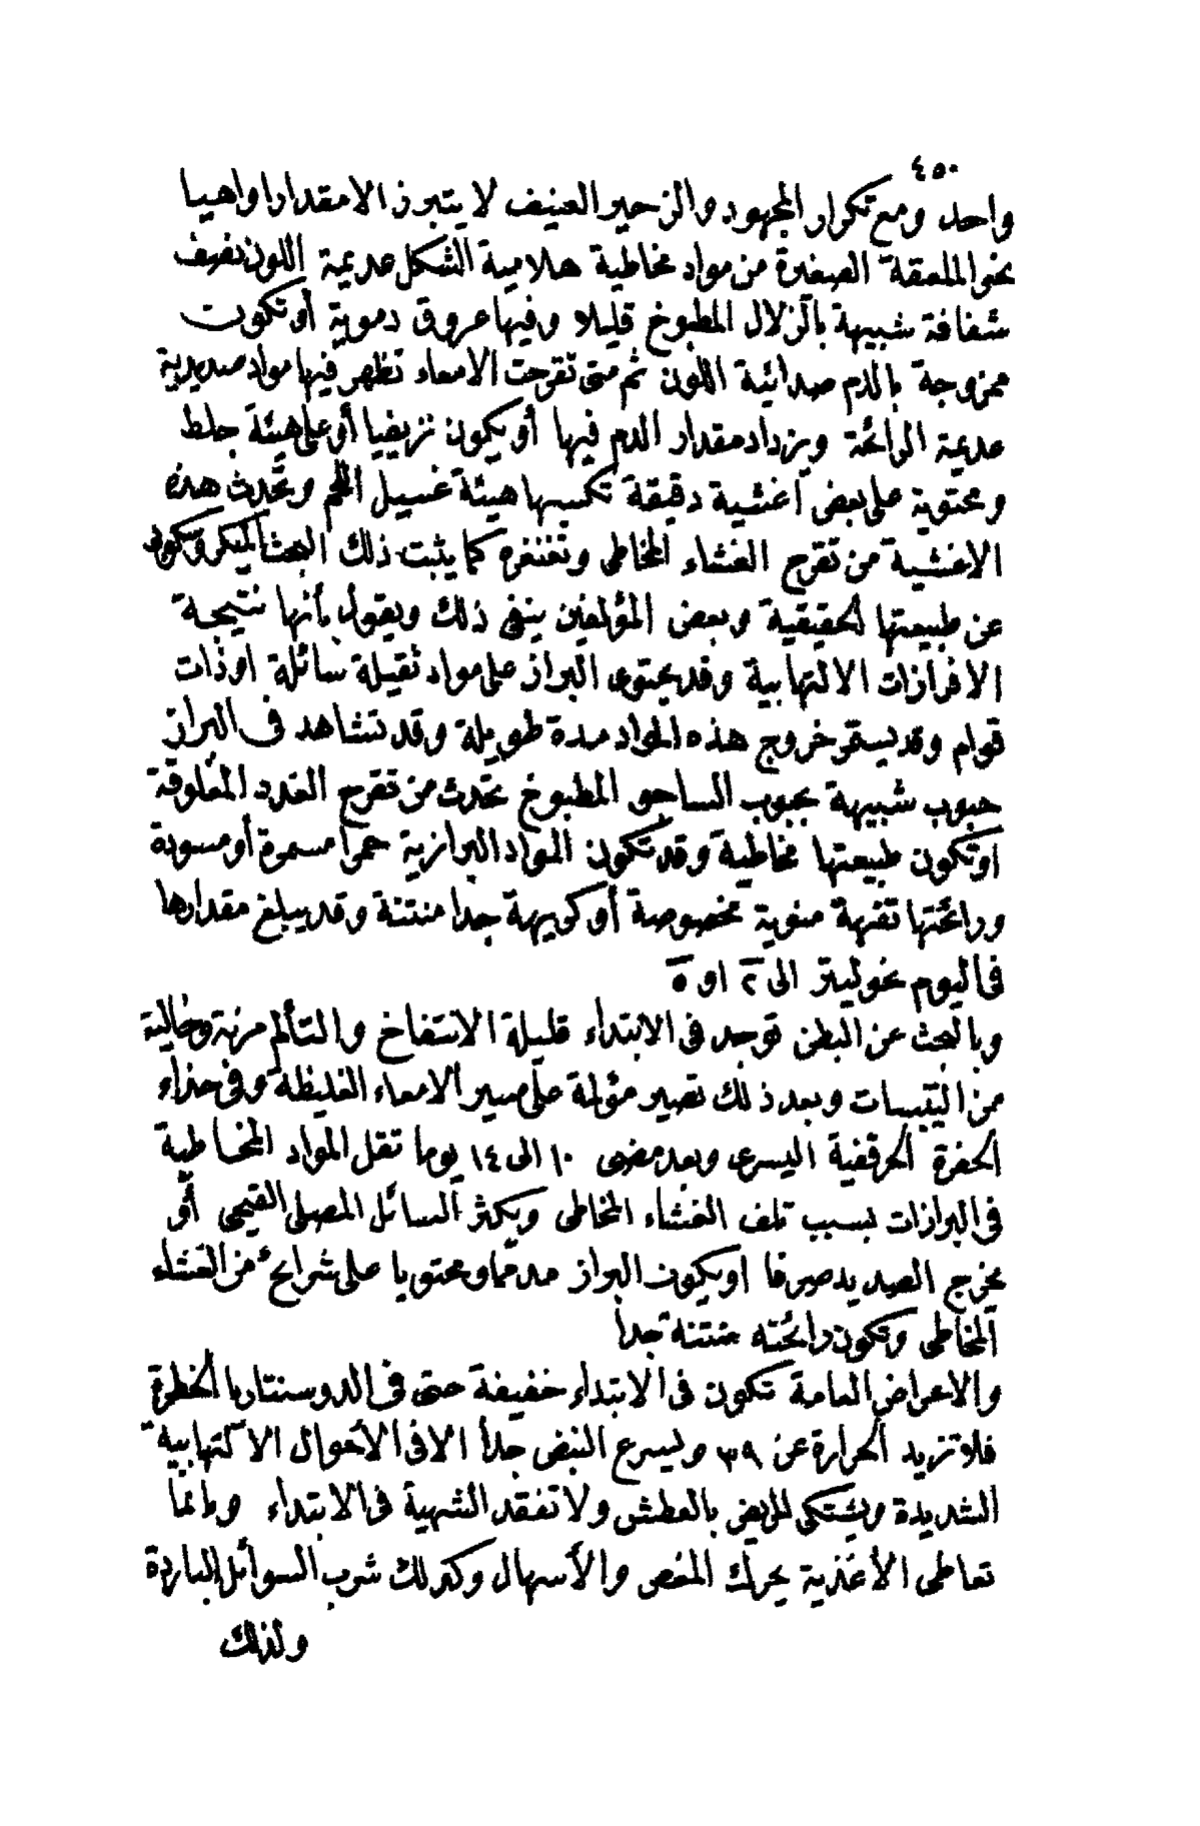 ٤٥٠
واحد ومع تكرار المجهود والزحير العنيف لا يتبرز الا مقدارا واهيا
نحو الملعقة الصغيرة من مواد مخاطية هلامية الشكل عديمة اللون نصف
شفافة شبيهة بالزلال المطبوخ قليلا وفيها عروق دموية أو تكون
ممزوجة بالدم صدائية اللون ثم متى تقرحت الامعاء تظهر فيها مواد صديدية
عديمة الرائحة ويزداد مقدار الدم فيها أو يكون نزيفيا أو على هيئة جلط
ومحتوية على بعض أغشية دقيقة تكسبها هيئة غسيل اللحم وتحدث هذه
الاغشية من تقرح الغشاء المخاطى وتغنغره كما يثبت ذلك البحث الميكروسكوبى
عن طبيعتها الحقيقية وبعض المؤلفين ينفى ذلك ويقول بأنها نتيجة
الافرازات الالتهابية وقد يحتوى البراز على مواد ثقيلة سائلة او ذات
قوام وقد يستمر خروج هذه المواد مدة طويلة وقد تشاهد فى البراز
حبوب شبيهة بحبوب الساجو المطبوخ تحدث من تقرح الغدد المغلوقة
أو تكون طبيعتها مخاطية وقد تكون المواد البرازية حمرا مسمرة أو مسودة
ورائحتها تفهة منوية مخصوصة أو كريهة جدا منتنة وقد يبلغ مقدارها
فى اليوم نحو ليتر الى ٢ او ٥
وبالبحث عن البطن توجد فى الابتداء قليلة الانتفاخ والتألم مرنة وخالية
من التيبسات وبعد ذلك تصير مؤلمة على سير الامعاء الغليظة وفى حذاء
الحفرة الحرقفية اليسرى وبعد مضى ١٠ الى ١٤ يوما تقل المواد المخاطية
فى البرازات بسبب تلف الغشاء المخاطى ويكثر السائل المصلى القيحى أو
يخرج الصديد صرفا او يكون البراز مدمما ومحتويا على شرايح من الغشاء
المخاطى وتكون رائحته منتنة جدا
والاعراض العامة تكون فى الابتداء خفيفة حتى فى الدوسنتاريا الخطرة
فلا تزيد الحرارة عن ٣٩ ويسرع النبض جدا الا فى الأحوال الالتهابية
الشديدة ويشتكى المريض بالعطش ولا تفقد الشهية فى الابتداء وانما
تعاطى الأغذية يحرك المغص والأسهال وكذلك شرب السوائل الباردة
ولذلك